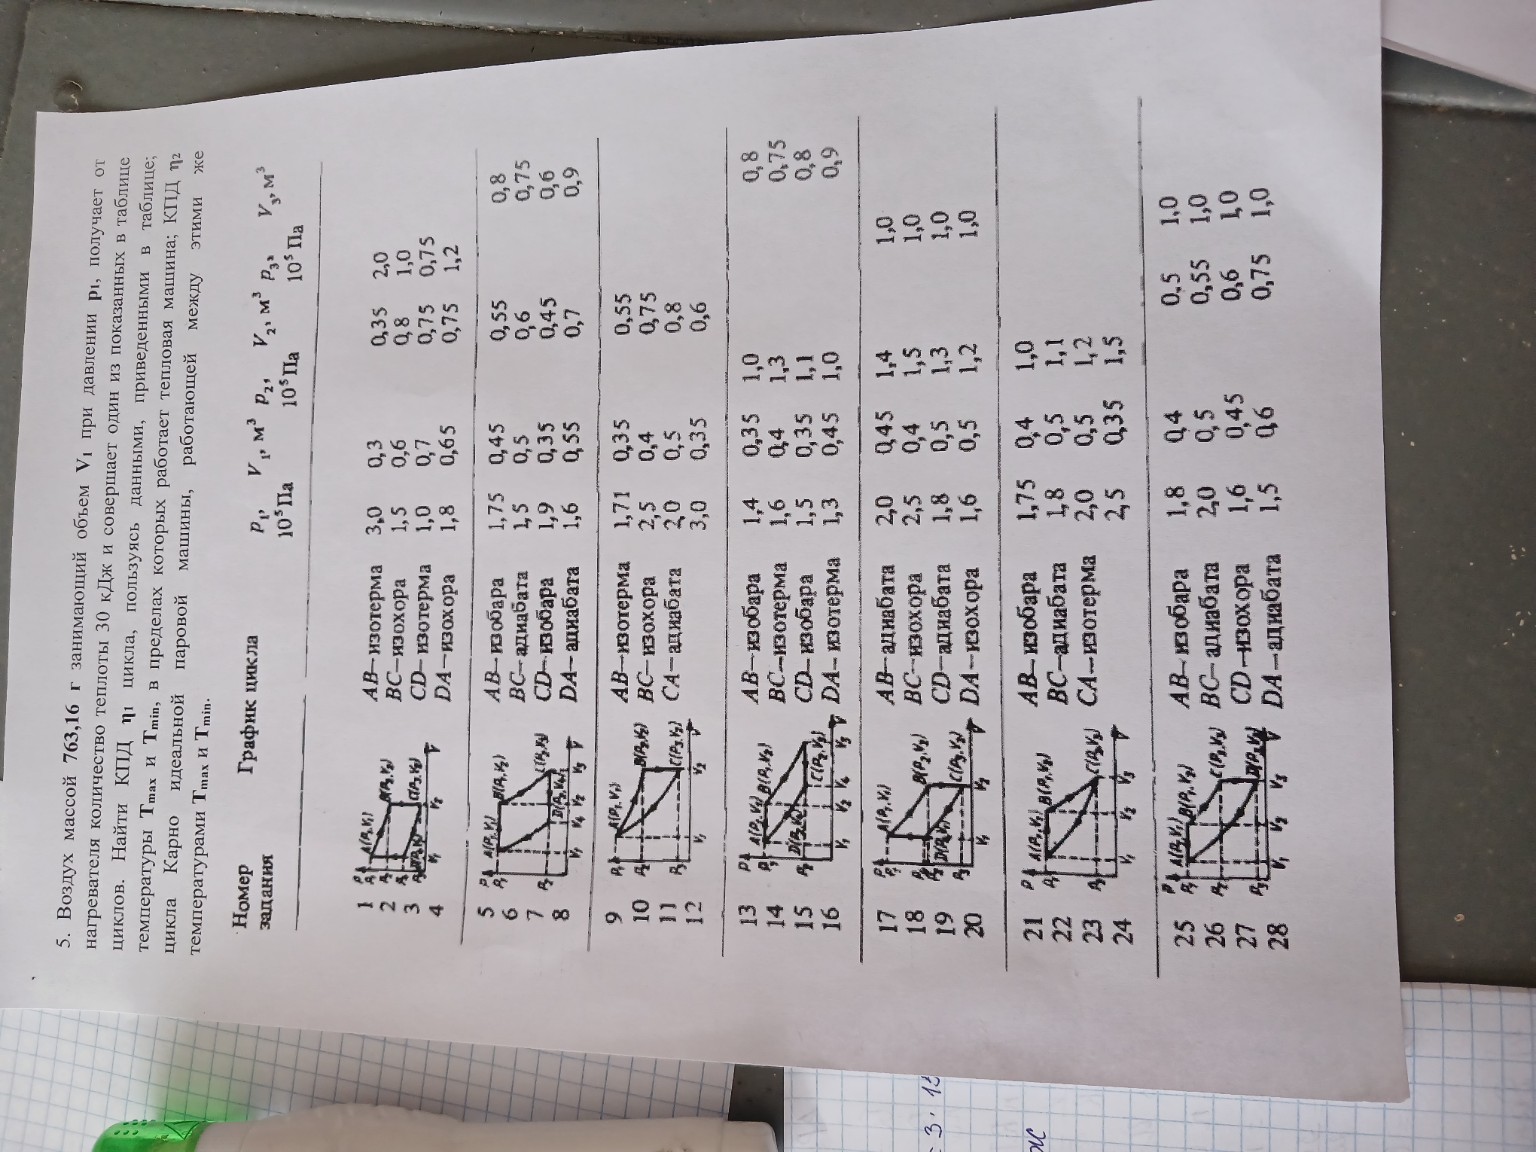 5. Воздух массой 763,16 г занимающий объем V₁ при давлении p₁, получает от
нагревателя количество теплоты 30 кДж и совершает один из показанных в таблице
циклов. Найти КПД η₁ цикла, пользуясь данными, приведенными в таблице;
температуры Tmax и Tmin, в пределах которых работает тепловая машина; КПД η₂
цикла Карно идеальной паровой машины, работающей между этими же
температурами Tmax и Tmin.
Номер задания График цикла p₁, 10⁵ Па V₁, м³ p₂, 10⁵ Па V₂, м³ p₃, 10⁵ Па V₃, м³
1 AB—изотерма 3,0 0,3 0,35 2,0
2 BC—изохора 1,5 0,6 0,8 1,0
3 CD—изотерма 1,0 0,7 0,75 0,75
4 DA—изохора 1,8 0,65 0,75 1,2
5 AB—изобара 1,75 0,45 0,55 0,8
6 BC—адиабата 1,5 0,5 0,6 0,75
7 CD—изобара 1,9 0,35 0,45 0,6
8 DA—адиабата 1,6 0,55 0,7 0,9
9 AB—изотерма 1,71 0,35 0,55
10 BC—изохора 2,5 0,4 0,75
11 CA—адиабата 2,0 0,5 0,8
12 3,0 0,35 0,6
13 AB—изобара 1,4 0,35 1,0 0,8
14 BC—изотерма 1,6 0,4 1,3 0,75
15 CD—изобара 1,5 0,35 1,1 0,8
16 DA—изотерма 1,3 0,45 1,0 0,9
17 AB—адиабата 2,0 0,45 1,4 1,0
18 BC—изохора 2,5 0,4 1,5 1,0
19 CD—адиабата 1,8 0,5 1,3 1,0
20 DA—изохора 1,6 0,5 1,2 1,0
21 AB—изобара 1,75 0,4 1,0
22 BC—адиабата 1,8 0,5 1,1
23 CA—изотерма 2,0 0,5 1,2
24 2,5 0,35 1,5
25 AB—изобара 1,8 0,4 0,5 1,0
26 BC—адиабата 2,0 0,5 0,55 1,0
27 CD—изохора 1,6 0,45 0,6 1,0
28 DA—адиабата 1,5 0,6 0,75 1,0